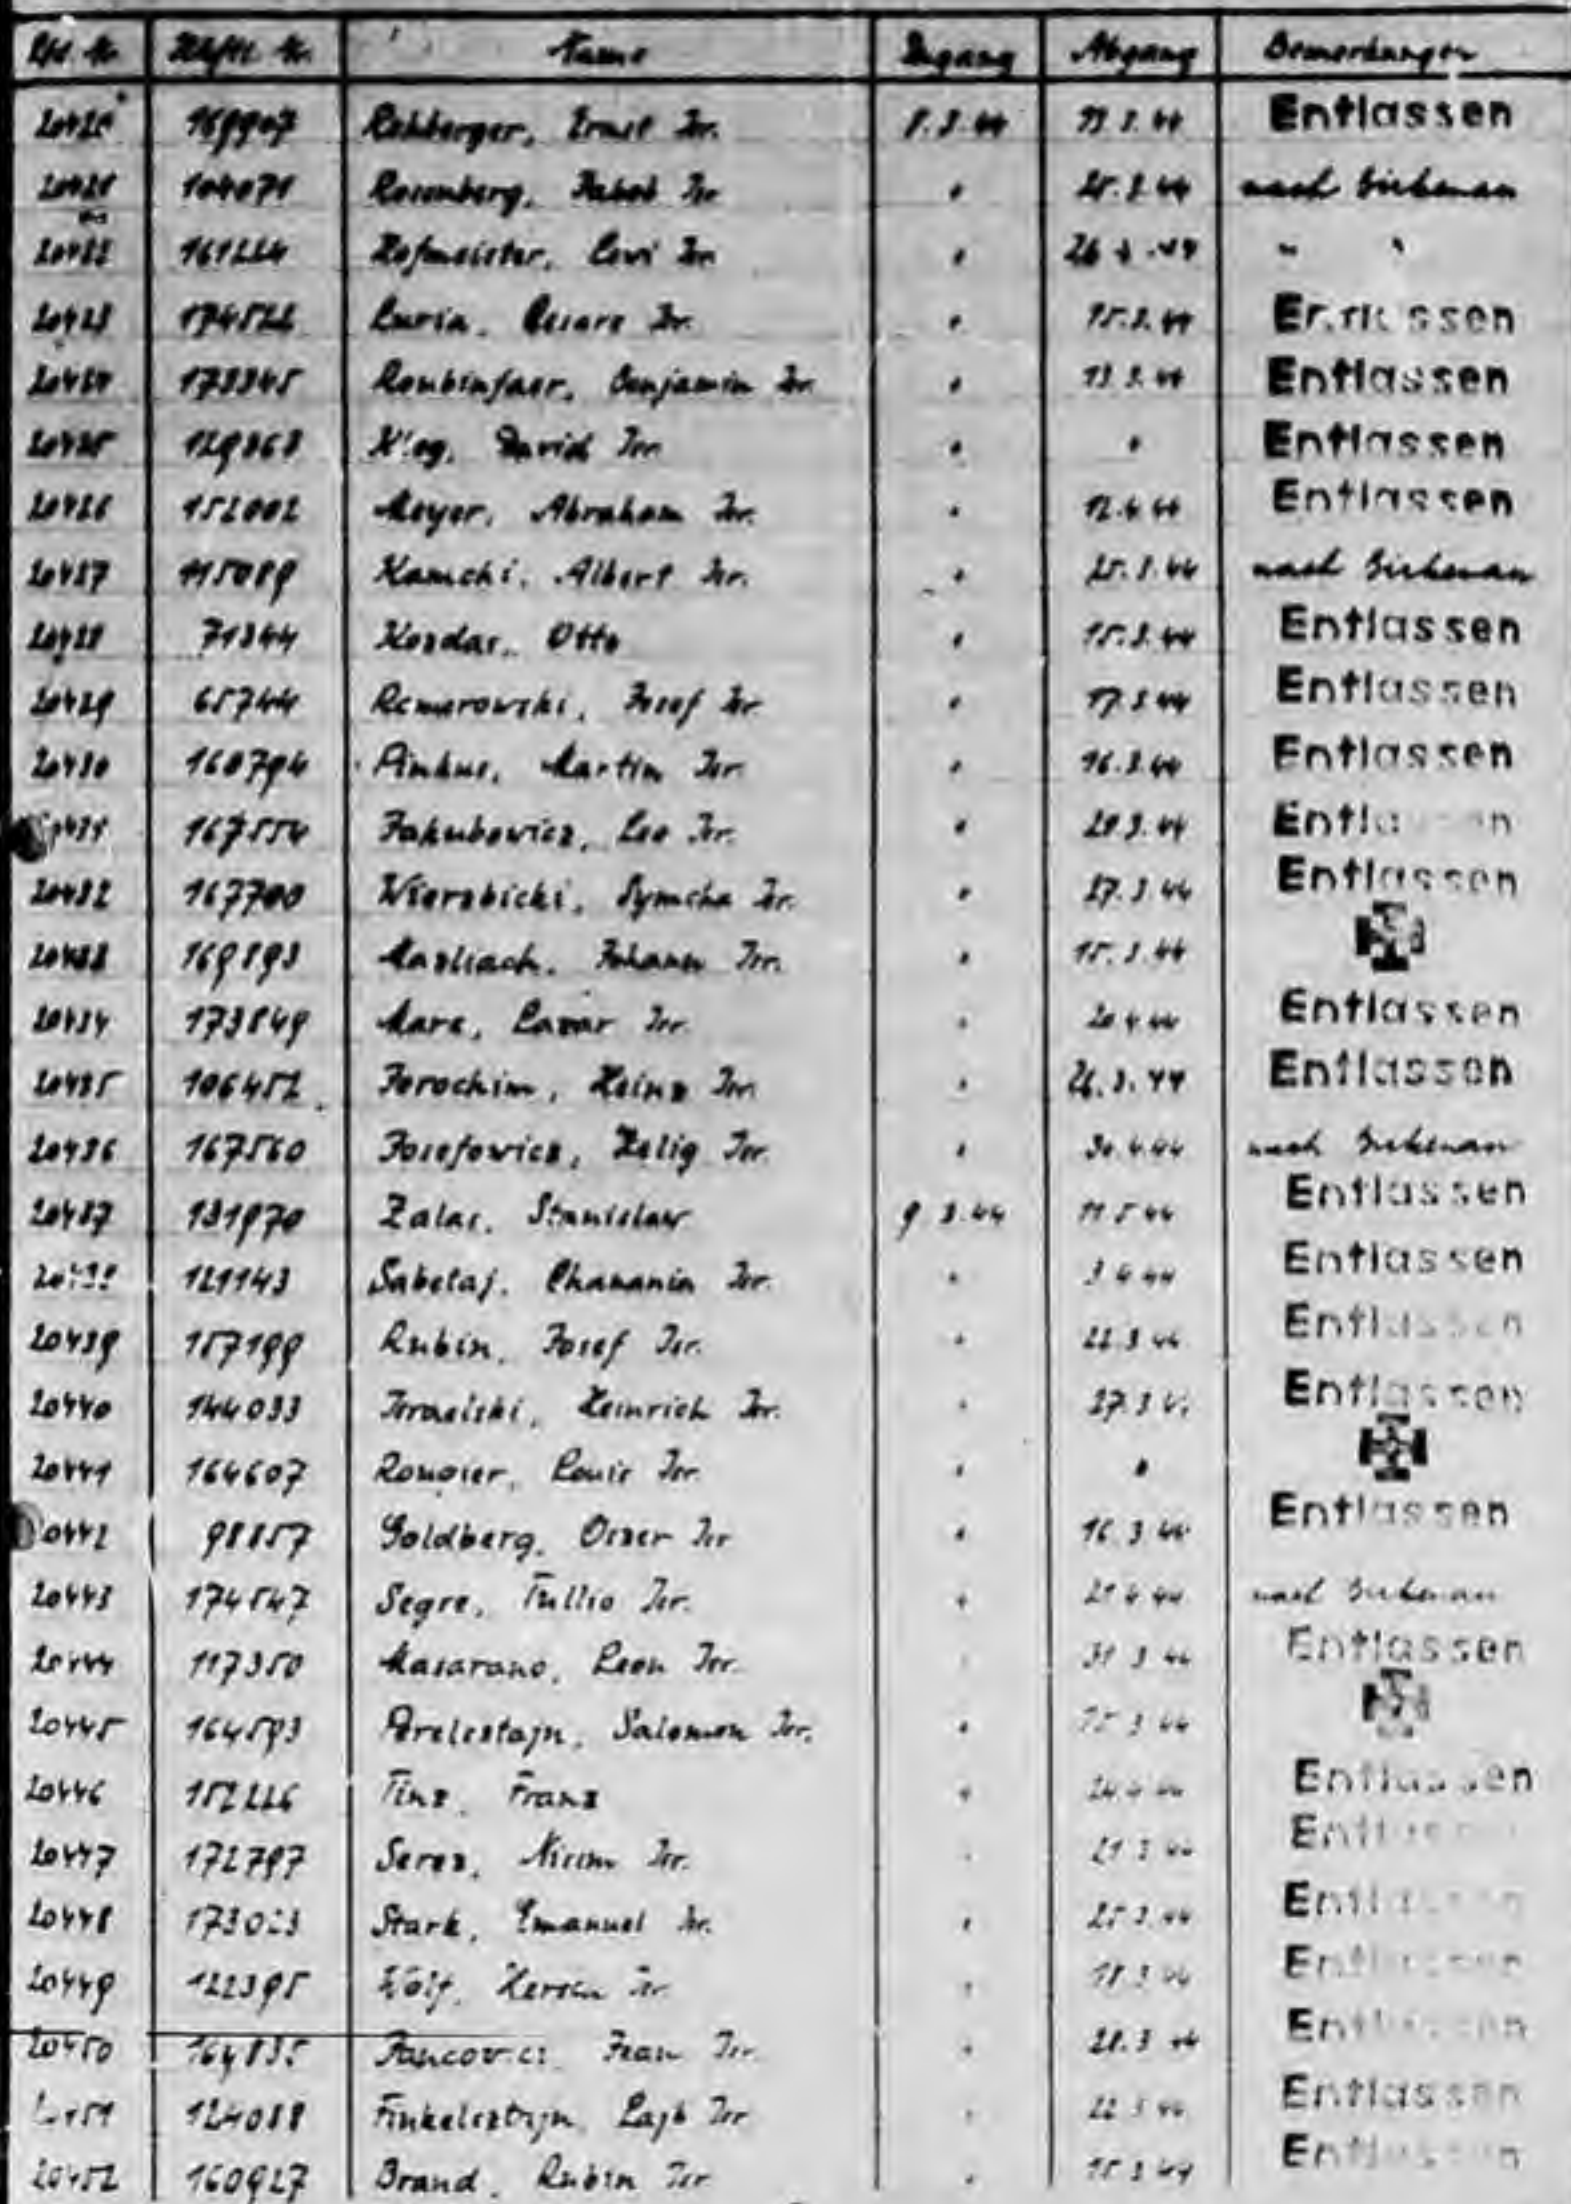 Lfd. Nr. Häftl. Nr. Name Zugang Abgang Bemerkungen
20420 169907 Rehberger, Ernst Isr. 8.3.44 13.3.44 Entlassen
20421 104071 Rosenberg, Jakob Isr. " 25.3.44 nach Birkenau
20422 161224 Hofmeister, Lewi Isr. " 26.3.44 " "
20423 174522 Luria, Cesare Isr. " 15.3.44 Entlassen
20424 173345 Roubinfaer, Benjamin Isr. " 13.3.44 Entlassen
20425 129363 David Isr. " " Entlassen
20426 152002 Meyer, Abraham Isr. " 12.4.44 Entlassen
20427 115089 Kamchi, Albert Isr. " 25.3.44 nach Birkenau
20428 71344 Kosdas, Otto " 15.3.44 Entlassen
20429 65744 Remerowski, Josef Isr. " 17.3.44 Entlassen
20430 160794 Pinkus, Martin Isr. " 16.3.44 Entlassen
20431 167554 Jakubowicz, Leo Isr. " 28.3.44 Entlassen
20432 167700 Wierzbicki, Symcha Isr. " 27.3.44 Entlassen
20433 169893 Mazliach, Johann Isr. " 15.3.44
20434 173849 Mare, Lazar Isr. " 20.4.44 Entlassen
20435 106452 Jorochim, Heinz Isr. " 26.3.44 Entlassen
20436 167560 Josefowicz, Zelig Isr. " 30.4.44 nach Birkenau
20437 131970 Zalas, Stanislaw 9.3.44 11.5.44 Entlassen
20438 121143 Sabetaj, Chanania Isr. " 3.4.44 Entlassen
20439 157199 Rubin, Josef Isr. " 22.3.44 Entlassen
20440 144033 Israelski, Heinrich Isr. " 27.3.44 Entlassen
20441 164607 Rousier, Louis Isr. " "
20442 98857 Goldberg, Oszer Isr. " 16.3.44 Entlassen
20443 174547 Segre, Tullio Isr. " 21.4.44 nach Birkenau
20444 117350 Masarano, Leon Isr. " 31.3.44 Entlassen
20445 164593 Perelestajn, Salomon Isr. " 15.3.44
20446 152226 Tinz, Franz " 24.4.44 Entlassen
20447 172797 Seres, Nissim Isr. " 21.3.44 Entlassen
20448 173023 Stark, Emanuel Isr. " 25.3.44 Entlassen
20449 122395 Wolf, Hersch Isr. " 18.3.44 Entlassen
20450 164835 Jancovici, Jean Isr. " 28.3.44 Entlassen
20451 124088 Finkelsztajn, Lajb Isr. " 22.3.44 Entlassen
20452 160927 Brand, Rubin Isr. " 15.3.44 Entlassen